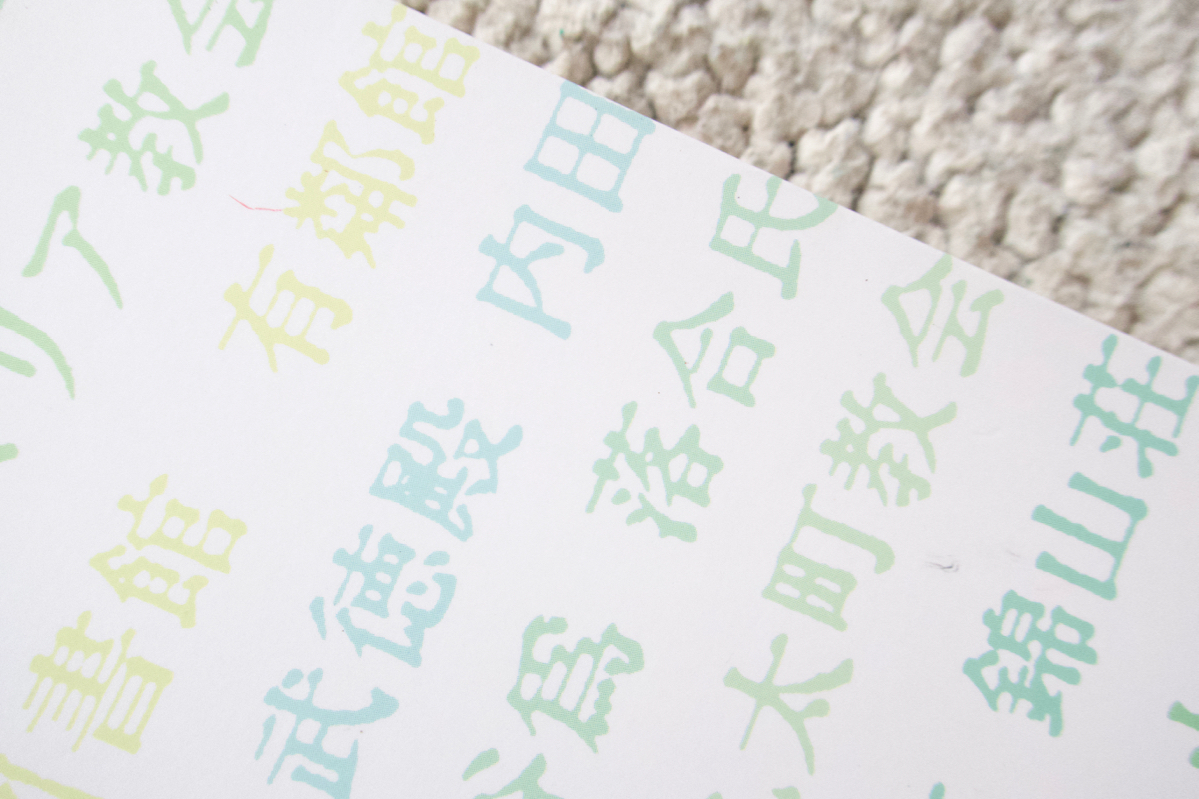 リア教会
書館 有鄰館
武徳殿 内田
為 落合氏
大町教会
錦山荘